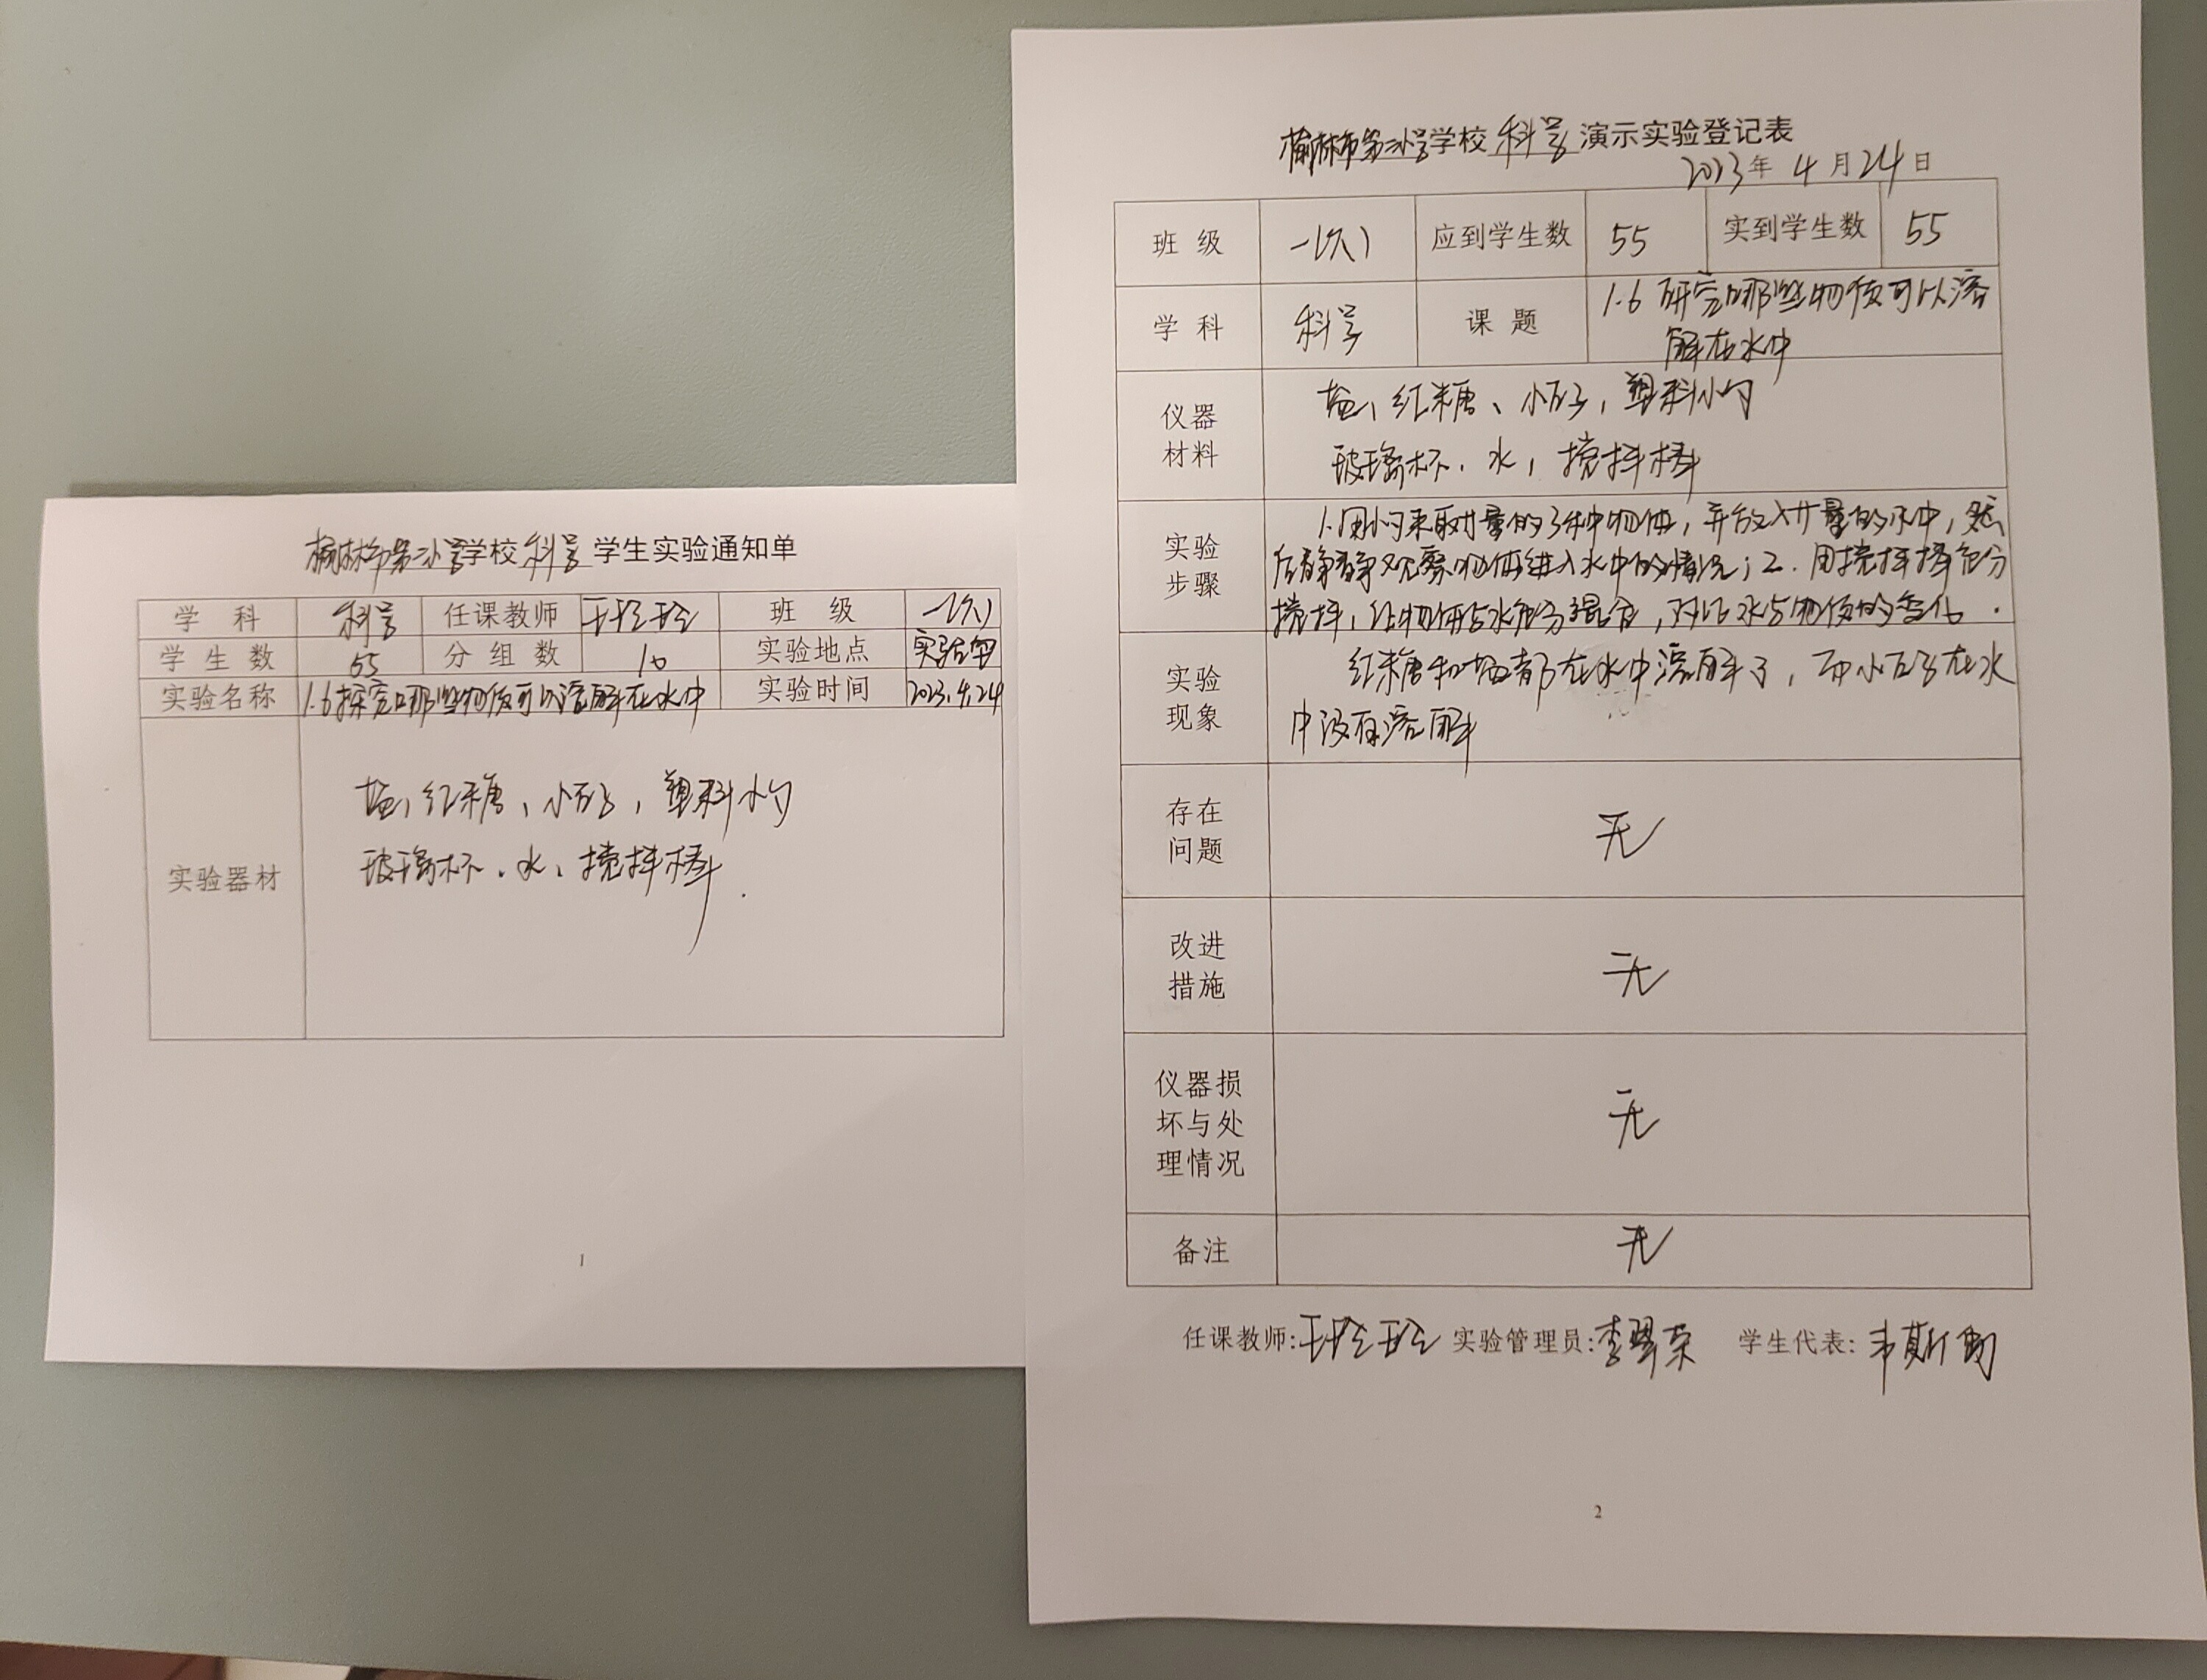 榆林市第二小学学校 科学 学生实验通知单
学 科 科学 任课教师 班 级 一(久)
学 生 数 55 分 组 数 10 实验地点 实验室
实验名称 1.6探究哪些物质可以溶解在水中 实验时间 2023.4.24
实验器材
盐、红糖、小石子,塑料小勺
玻璃杯、水、搅拌棒.
1
榆林市第二小学学校 科学 演示实验登记表
2023年 4 月 24 日
班 级 一(久) 应到学生数 55 实到学生数 55
学 科 科学 课 题 1.6 研究哪些物质可以溶
解在水中
仪器
材料
盐、红糖、小石子,塑料小勺
玻璃杯、水,搅拌棒
实验
步骤
1.用小勺取量的3种物体,并放入量的水中,然
后静静观察物体进入水中的情况;2.用搅拌棒充分
搅拌,让物体与水充分混合,对比水与物质的变化.
实验
现象
红糖和盐都在水中溶解了,而小石子在水
中没有溶解
存在
问题
无
改进
措施
无
仪器损
坏与处
理情况
无
备注
无
任课教师: 实验管理员:李翠荣 学生代表:
2